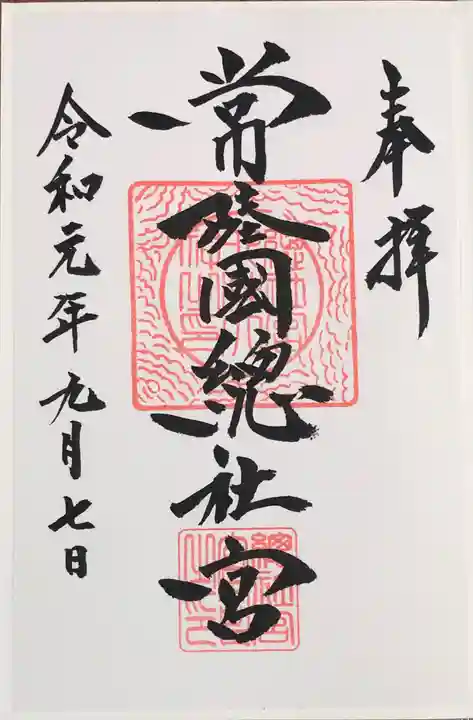 奉拝
常陸國總社宮
令和元年九月七日